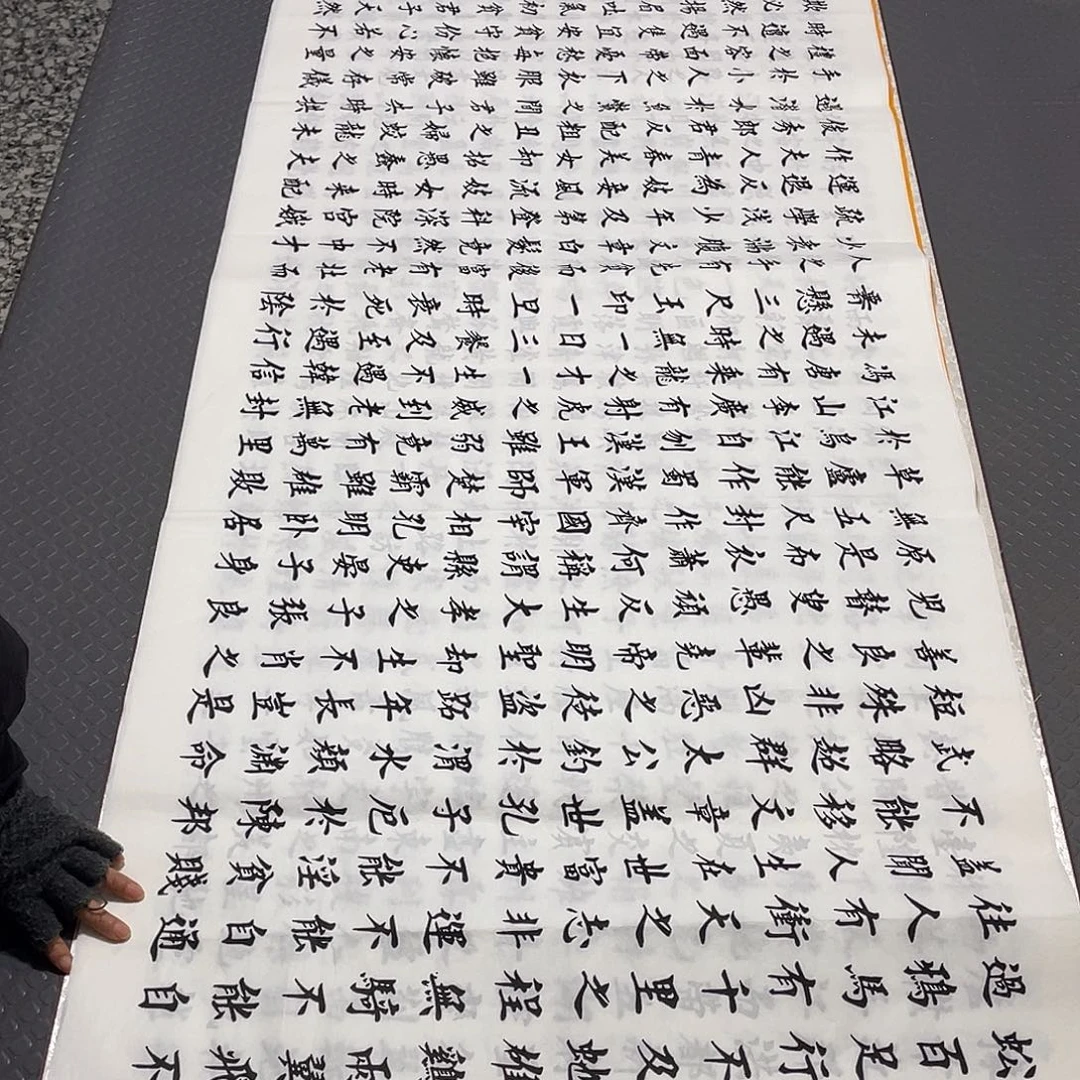 蜈百足行不及蛇雄鷄兩翼飛不
過鴉馬有千里之程無騎不能自
往人有衝天之志非運不能自通
蓋聞人生在世富貴不能淫貧賤
不能移文章蓋世孔子厄於陳邦
武略超群太公釣於渭水顏淵命
短殊非凶惡之徒盜跖年長豈是
善良之輩堯帝明聖却生不肖之
兒瞽叟愚頑反生大孝子張良
原是布衣蕭何稱謂縣吏晏子身
無五尺封作齊國宰相孔明卧居
草盧能作蜀漢軍師楚霸雖雄敗
於烏江自刎漢王雖弱竟有萬里
江山李廣有射虎之威到老無封
馮唐有乘龍之才一生不遇韓信
未遇之時無一日三餐及至遇行
懸三尺玉印一旦時衰死於陰
人之手有先貧而後富有老壯而
少衰滿腹文章白髮竟然不中才
疏學淺少年及第登科深院宮娥
運退反為妓妾風流妓女時來配
作夫人青春美女却招愚蠢之夫
俊秀郎君反配粗丑之婦蛟龍未
遇潛水於魚鱉之間君子失時拱
手於小人之下衣服雖破常存儀
禮之容面帶憂愁每抱懷安之量
時遭不遇只宜安貧守份心若不
欺必然揚眉吐氣初貧君子天然